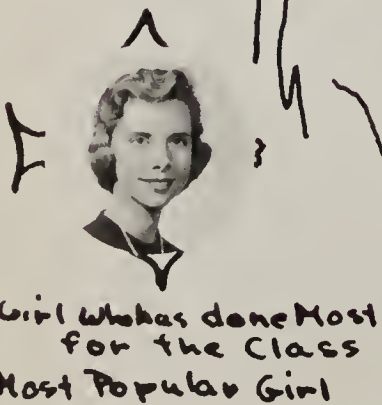 Girl who has done Most
for the Class
Most Popular Girl